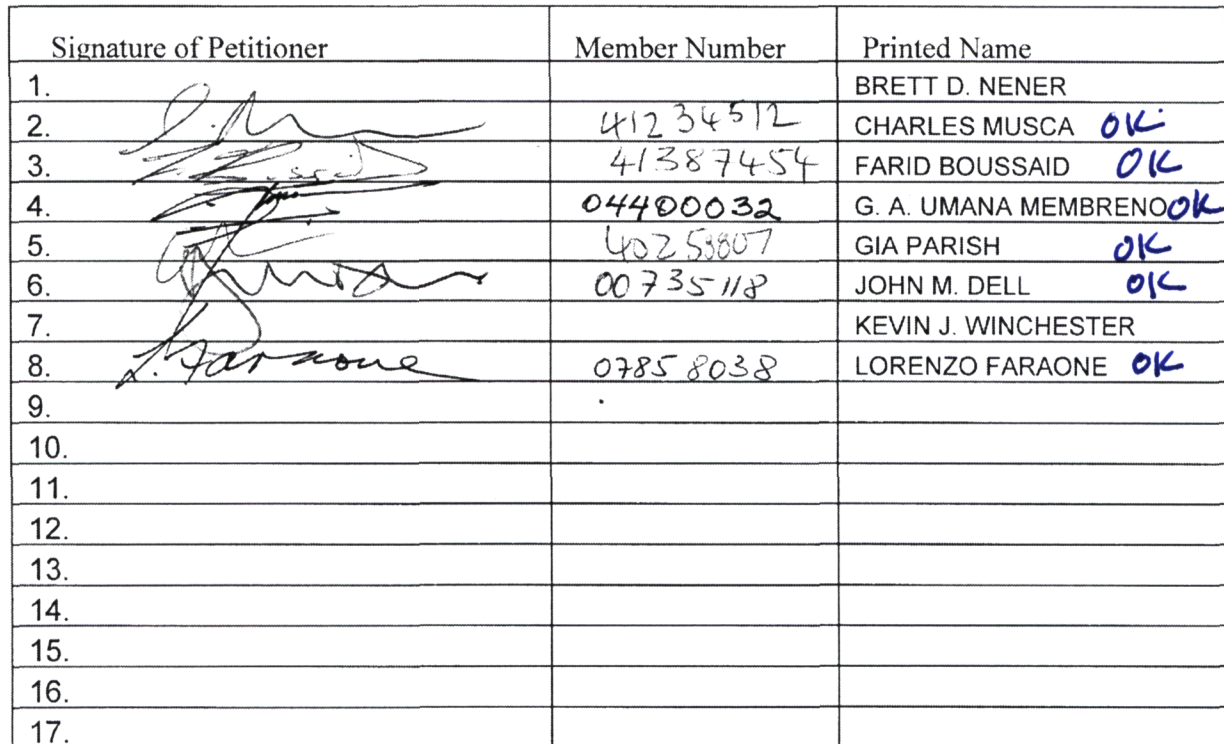 Signature of Petitioner Member Number Printed Name
1. BRETT D. NENER
2. 41234512 CHARLES MUSCA OK
3. 41387454 FARID BOUSSAID OK
4. 04400032 G. A. UMANA MEMBRENO OK
5. GIA PARISH OK
6. 00735118 JOHN M. DELL OK
7. KEVIN J. WINCHESTER
8. L. Faraone 07858038 LORENZO FARAONE OK
9.
10.
11.
12.
13.
14.
15.
16.
17.